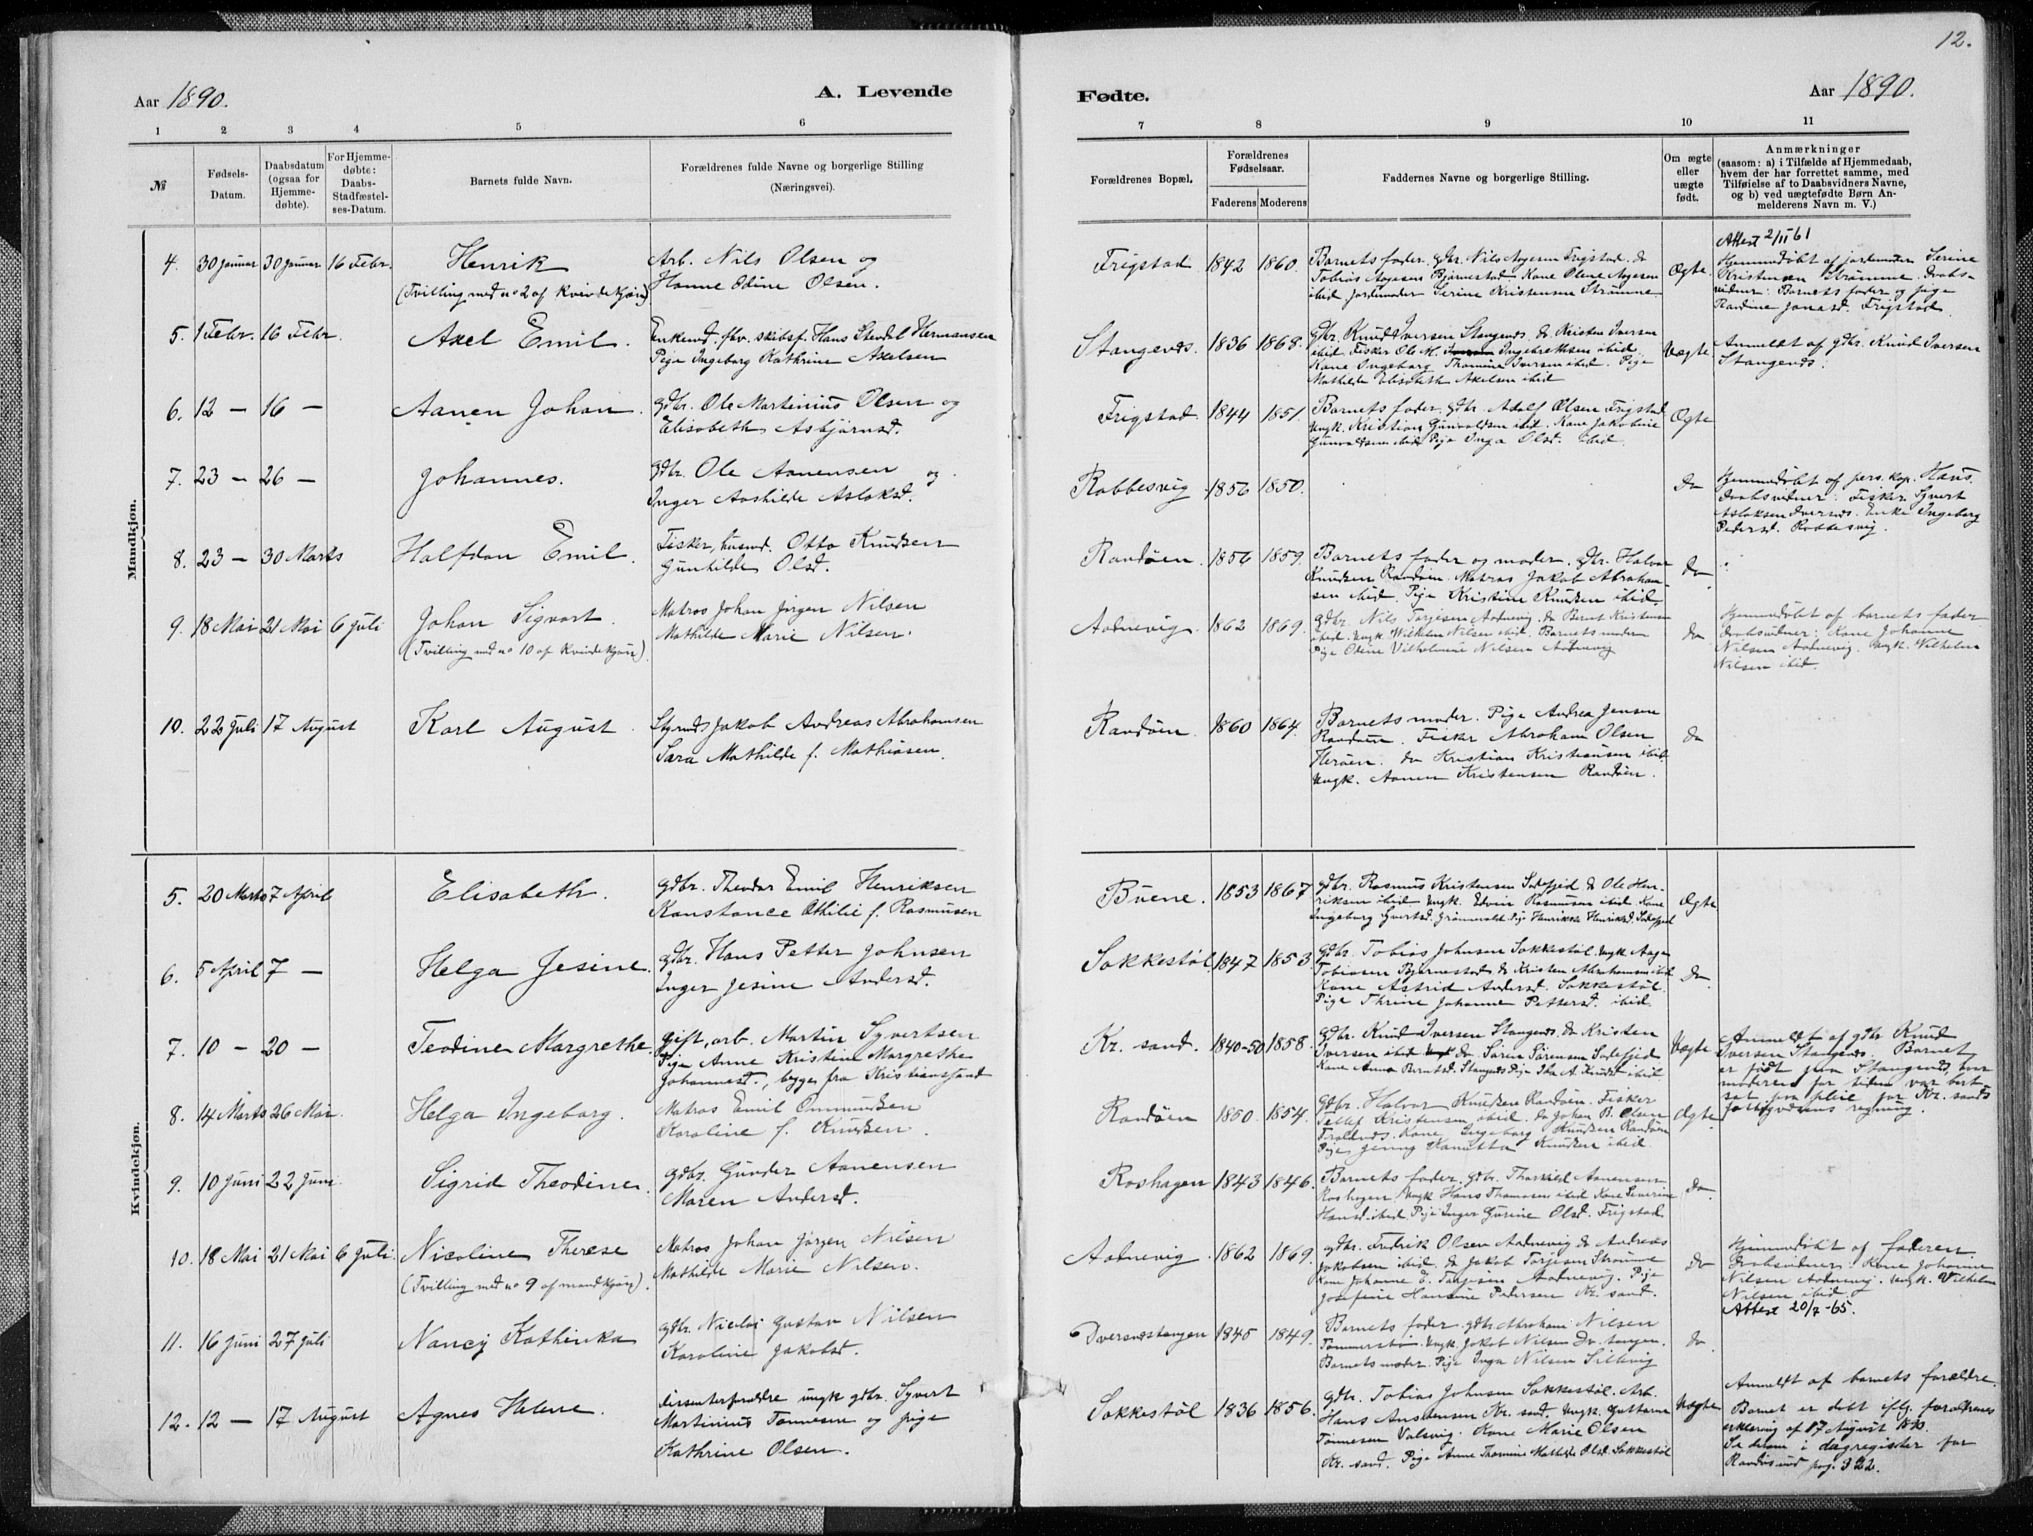 12.
Aar 1890.
A. Levende
Fødte.
Aar 1890.
1 2 3 4 5 6
7 8 9 10 11
№
Fødsels-
Datum.
Daabsdatum
(ogsaa for
Hjemme-
døbte).
For Hjemme-
døbte:
Daabs-
Stadfæstel-
ses-Datum.
Barnets fulde Navn.
Forældrenes fulde Navne og borgerlige Stilling
(Næringsvei).
Forældrenes Bopæl.
Forældrenes
Fødselsaar.
Faderens Moderens
Faddernes Navne og borgerlige Stilling.
Om ægte
eller
uægte
født.
Anmærkninger
(saasom: a) i Tilfælde af Hjemmedaab,
hvem der har forrettet samme, med
Tilføielse af to Daabsvidners Navne,
og b) ved uægtefødte Børn An-
melderens Navn m. V.)
Mandkjøn.
4. 30 Januar 30 Januar 16 Febr. Henrik
(Tvilling med no 2 af Kvindekjøn)
Arb. Nils Olsen og
Hanne Odine Olsen.
Frigstad 1842 1860.
Barnets fader. gdbr. Nils Aagesen Frigstad. do
Tobias Aagesen Bjørnestad. Kone Olene Aagesen
ibid. Jordemoder Serine Kristensen Strømme.
Ægte
Attest 2/11 61
Hjemmedøbt af jordemoder Serine
Kristensen Strømme. Daabs-
vidner: Barnets fader og pige
Randine Jonasd. Frigstad.
5. 1 Febr. 16 Febr. Axel Emil.
Enkemd. fhv. skibsf. Hans Stendel Hermansen
Pige Ingeborg Kathrine Axelsen
Stangenes. 1836 1868.
gdbr. Knud Iversen Stangenes. do Kristen Iversen
ibid. Fisker Ole M. Ingebrethsen ibid.
Kone Ingeborg Thomine Iversen ibid. Pige
Mathilde Elisabeth Axelsen ibid
Uægte
Anmeldt af gdbr. Knud Iversen
Stangenes.
6. 12 – 16 – Aanen Johan.
gdbr. Ole Martinius Olsen og
Elisabeth Asbjørnsd.
Frigstad. 1844 1851.
Barnets fader. gdbr. Adolf Olsen Frigstad
Ungk. Kristian Gunvaldsen ibid. Kone Jakobine
Gunvaldsen ibid. Pige Inga Olsd. ibid.
Ægte
7. 23 – 26 – Johannes.
gdbr. Ole Aanensen og
Inger Aashilde Aslaksd.
Rabbesvig 1856 1850.
Do
Hjemmedøbt af pers. kap. Hans.
Daabsvidner: Fisker Syvert
Aslaksen Dversnes. Enke Ingeborg
Pedersd. Rabbesvig.
8. 23 – 30 Marts Halfdan Emil.
Fisker, husmd. Otto Knudsen
Gunhilde Olsd.
Randøen. 1856 1859.
Barnets fader og moder. gdbr. Halvor
Knudsen Randøen. Matros Jakob Abraham-
sen ibid. Pige Kristine Knudsen ibid.
do
9. 18 Mai 21 Mai 6 Juli Johan Sigvart.
(Tvilling med no 10 af Kvindekjøn).
Matros Johan Jørgen Nilsen
Mathilde Marie Nilsen.
Aadnevig. 1862 1869.
gdbr. Nils Tarjesen Aadnevig. do Bernt Kristensen
ibid. Ungk. Wilhelm Nilsen ibid. Barnets moder
Pige Odine Vilhelmine Nilsen Aadnevig
do
Hjemmedøbt af barnets fader
Daabsvidner: Kone Johanne
Nilsen Aadnevig. Ungk. Wilhelm
Nilsen ibid.
10. 22 Juli 17 August Karl August.
Styrmd. Jakob Andreas Abrahamsen
Sara Mathilde f. Mathiasen.
Randøen. 1860 1864.
Barnets moder. Pige Andrea Jensen
Randøen. Fisker Abraham Olsen
Herøen. do Kristian Kristensen ibid.
Ungk. Aanen Kristensen Randøen.
do
Kvindekjøn.
5. 20 Marts 7 April Elisabeth.
gdbr. Theodor Emil Henriksen
Konstance Othilie f. Rasmusen
Buene. 1853 1867
gdbr. Rasmus Kristensen Sodefjed do Ole Hen-
riksen ibid. Ungk. Edvin Rasmusen ibid. Kone
Ingeborg Pige
Ægte
6. 5 April 7 – Helga Jesine.
gdbr. Hans Petter Johnsen
Inger Jesine Andersd.
Sakkestøl 1847 1853
gdbr. Tobias Johnsen Sakkestøl. Ungk. Aage
Tobiasen Bjørnestad. do Kristen Abrahamsen ibid
Kone Astrid Andersd. Sakkestøl.
Pige Thrine Johanne Pettersd. ibid.
Do.
7. 10 – 20 – Teodine Margrethe
gift, arb. Martin Syvertsen
Pige Anne Kristine Margrethe
Johannesd., begge fra Kristianssand
Kr. sand. 1840-50 1858.
gdbr. Knud Iversen Stangenes. do Kristen
Iversen ibid do Søren Sørensen Sodefjed
Kone Anna Berntsd. Stangenes Pige Ida A. Knudsd ibid
Uægte
Anmeldt af gdbr. Knud
Iversen Stangenes. Barnet
er født paa Stangenes, hvor
moderen for tiden var bort
sat paa pleie for Kr. sands
fattigvæsens regning.
8. 14 Marts 26 Mai. Helga Ingeborg.
Matros Emil Ommundsen
Karoline f. Knudsen.
Randøen 1850. 1854.
gdbr. Halvor Knudsen Randøen. Fisker
Tellef Kristensen ibid. do Johan B. Olsen
Kone Ingeborg Knudsen Randøen
Pige Jenny Knudsen ibid.
Ægte.
9. 10 Juni 22 Juni. Sigrid Theodine.
gdbr. Gunder Aanensen
Maren Andersd.
Roshagen 1843 1846.
Barnets fader. gdbr. Thorkild Aanensen
Roshagen Ungk Hans Thomasen ibid Kone Severine
Hansd. ibid. Pige Inger Gurine Olsd. Frigstad
do.
10. 18 Mai 21 Mai 6 Juli. Nicoline Therese
(Tvilling med no 9 af mandkjøn).
Matros Johan Jørgen Nilsen
Mathilde Marie Nilsen.
Aadnevig. 1862 1869.
gdbr. Fredrik Olsen Aadnevig do Andreas
Jakobsen ibid. do Jakob Tarjesen Strømme
Kone Johanne E. Tarjesen Aadnevig. Pige
Josefine Hansine Pedersen Kr. sand.
do
Hjemmedøbt af faderen.
Daabsvidner: Kone Johanne
Nilsen Aadnevig. Ungk. Vilhelm
Nilsen ibid.
Attest 20/7-65.
11. 16 Juni 27 Juli Nancy Kathinka
gdbr. Nicolai Gustav Nilsen
Karoline Jakobsd.
Dversnestangen 1845 1849.
Barnets fader. gdbr. Abraham Nilsen
Tømmerstø. Ungk. Jakob Nilsen Dv. tangen.
Barnets moder. Pige Inga Nilsen
do.
12. 12 – 17 August Agnes Helene.
dissenterforældre ungk. gdbr. Syvert
Martinius Tønnesen og pige
Kathrine Olsen.
Sakkestøl 1836 1856.
gdbr. Tobias Johnsen Sakkestøl. Arb.
Hans Anstensen Kr. sand. Ungk. Guttorm
Tønnesen Valsvig. Kone Marie Olsen
Kr. sand. Pige Anne Thomine Mathilde Olsd. Sakkestøl
Uægte
Anmeldt af barnets forældre.
Barnet er døbt iflg. forældrenes
erklæring af 17 August 1890.
Se denne i dagregister for
Randøsund pag. 322.